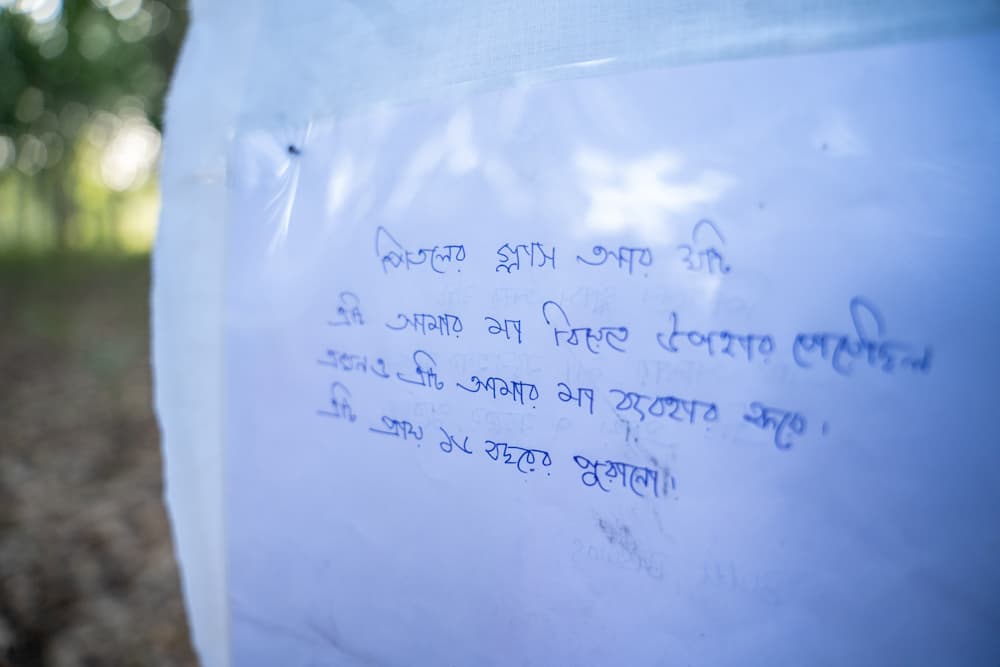 পিতলের গ্লাস আর বাটি
এটি আমার মা বিয়েতে উপহার পেয়েছিল
এখনও এটি আমার মা ব্যবহার করে।
এটি প্রায় ১৫ বছরের পুরানো।